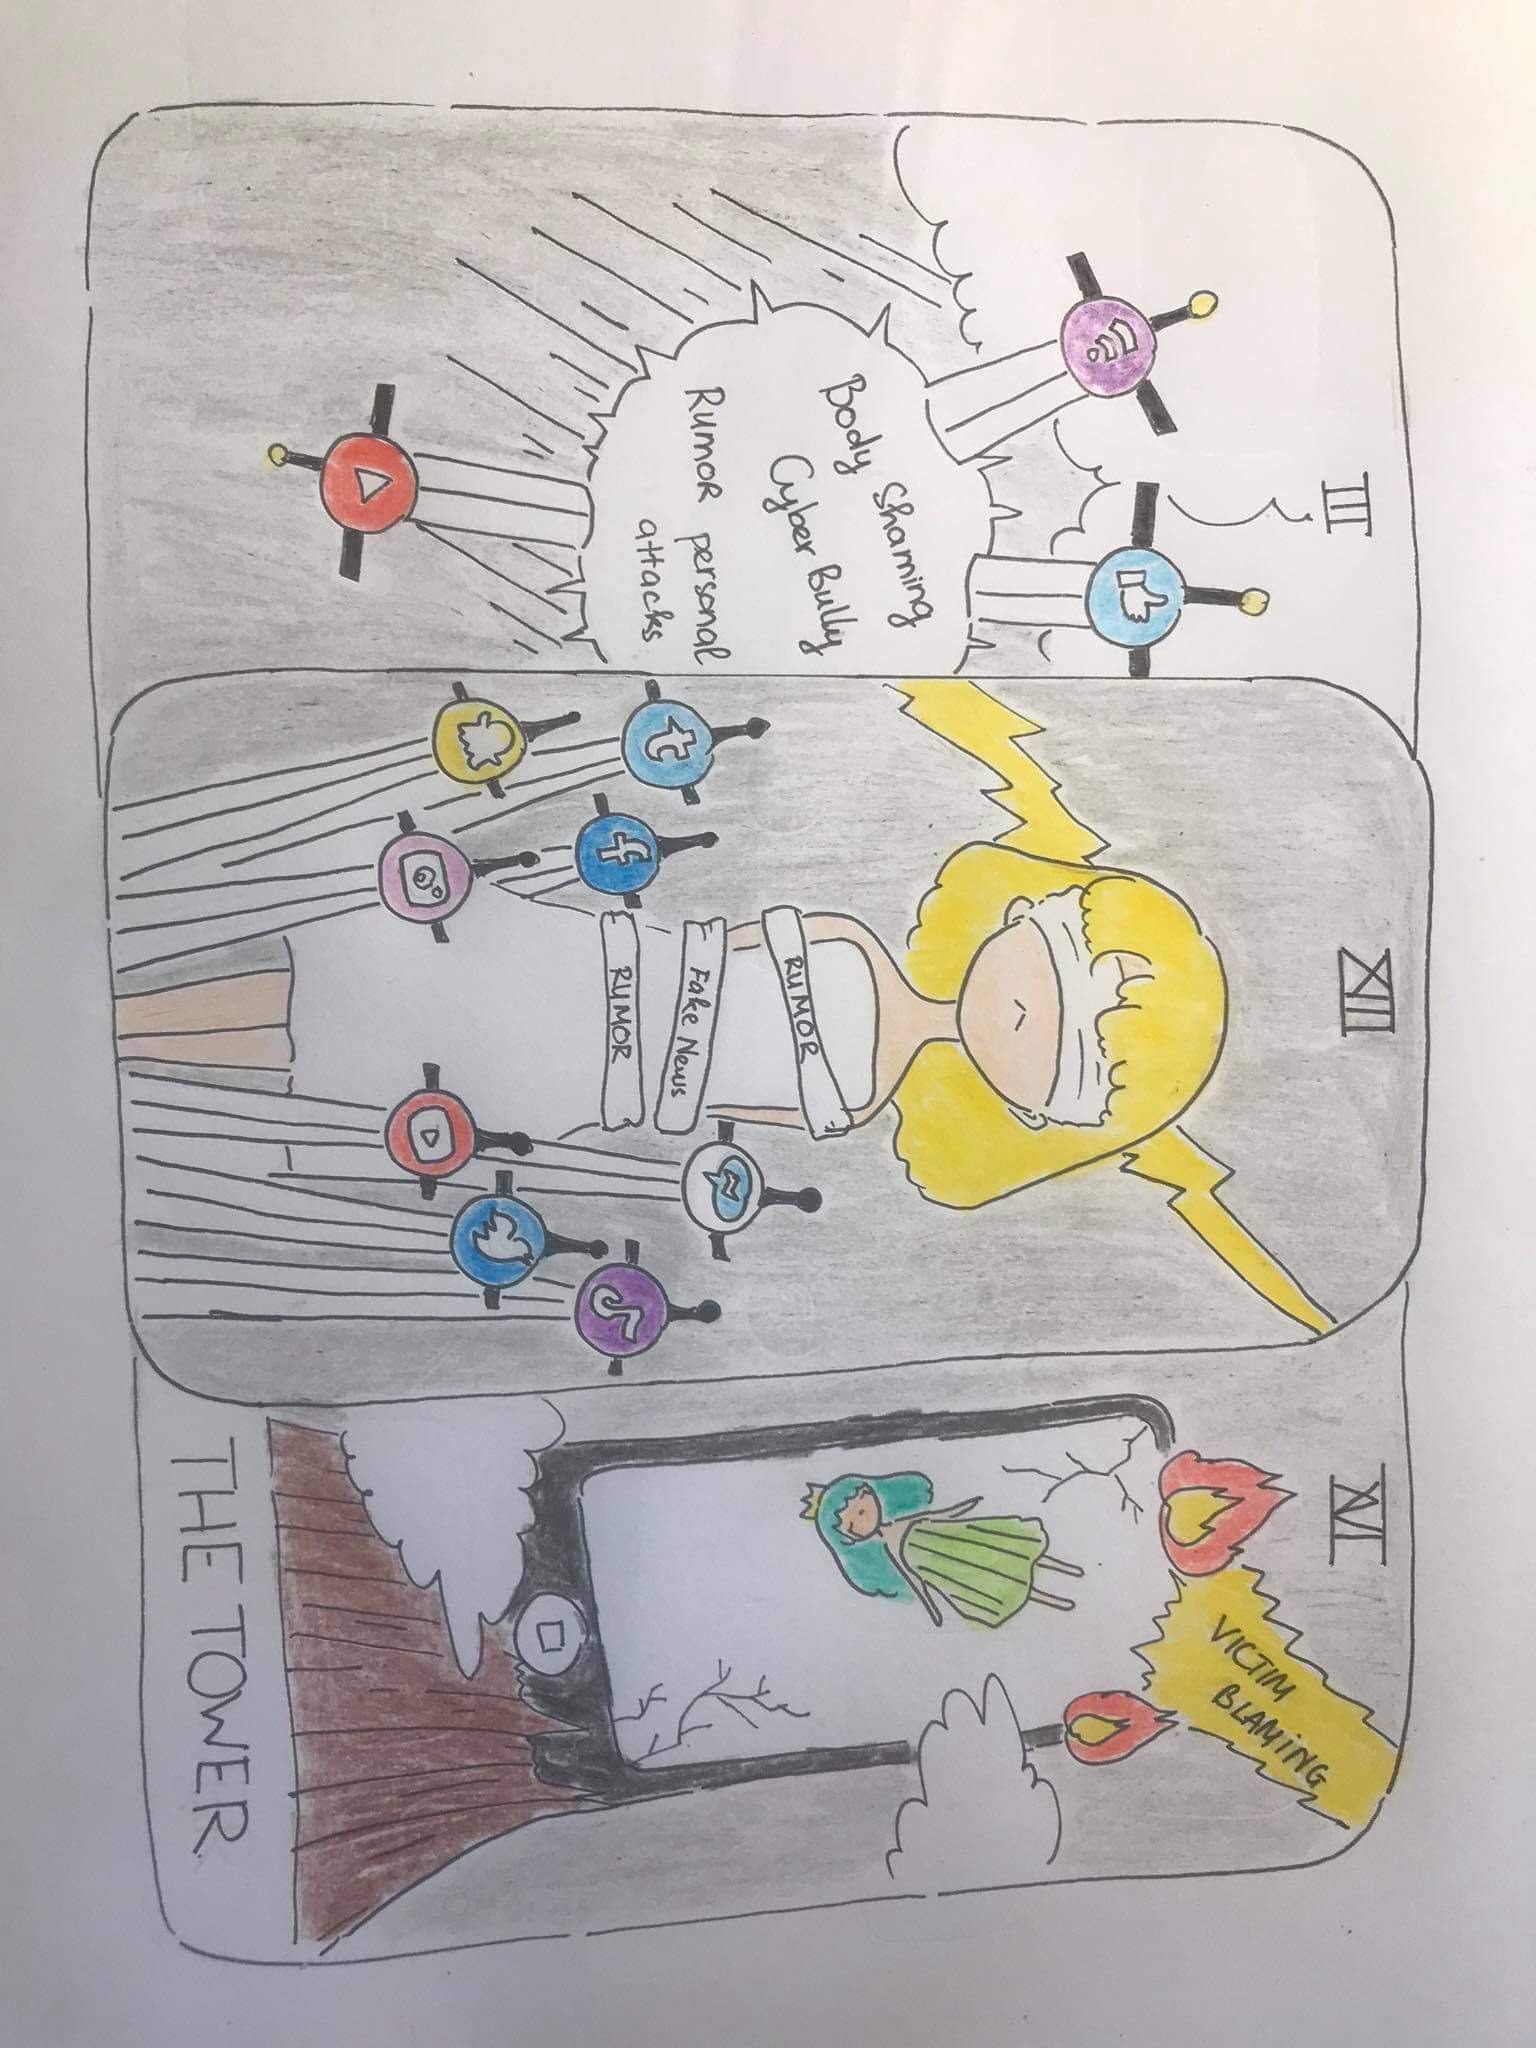 III
Body Shaming
Cyber Bully
Rumor personal
attacks
XIII
RUMOR
Fake News
RUMOR
XVI
VICTIM
BLAMING
THE TOWER